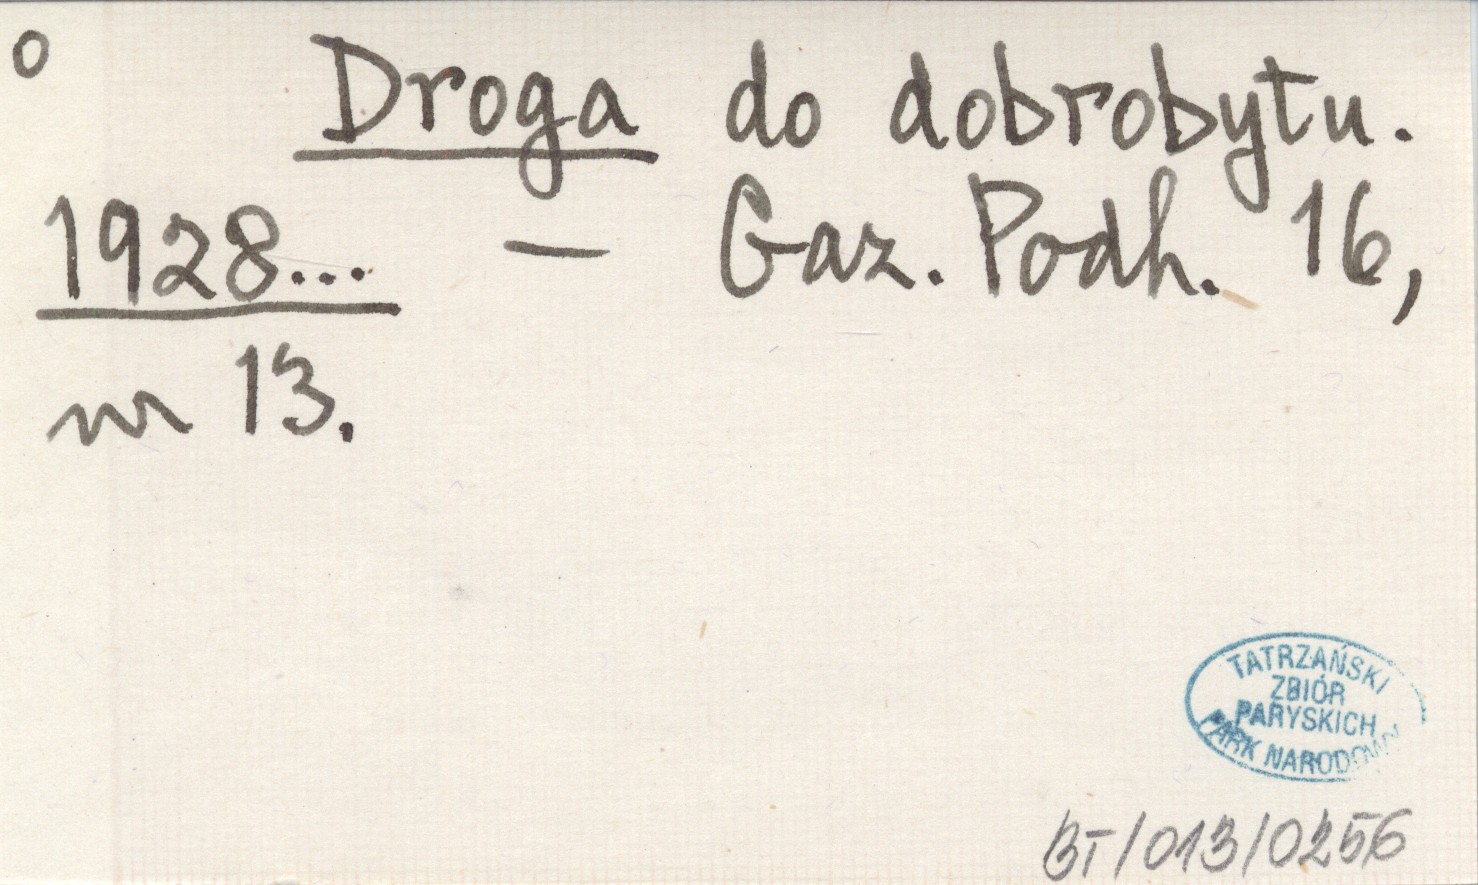 o
Droga do dobrobytu.
1928... — Gaz. Podh. 16,
nr 13.
TATRZAŃSKI
ZBIÓR
PARYSKICH
PARK NARODOWY
BT/013/0256